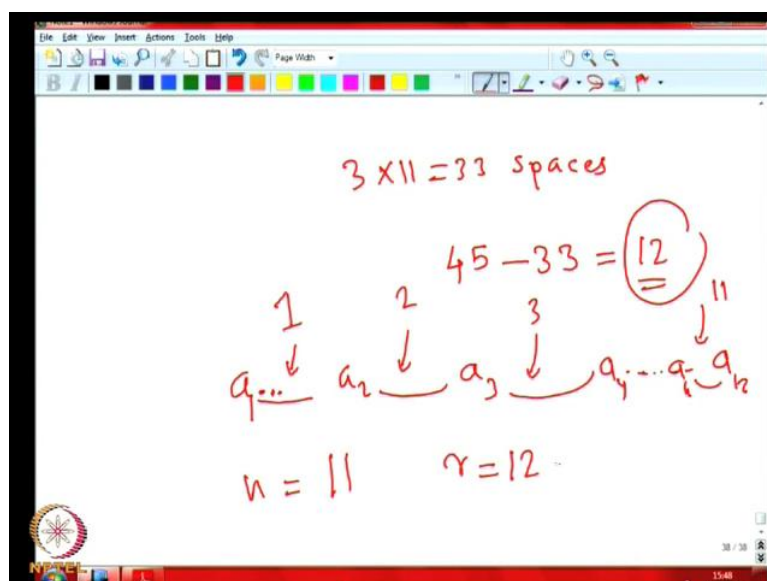 File Edit View Insert Actions Tools Help
Page Width
B I
3 × 11 = 33 spaces
45 – 33 = 12
1 2 3 11
a₁... a₂ a₃ a₄ ... a₁₁ a₁₂
n = 11 r = 12
NPTEL
38 / 38
15:48